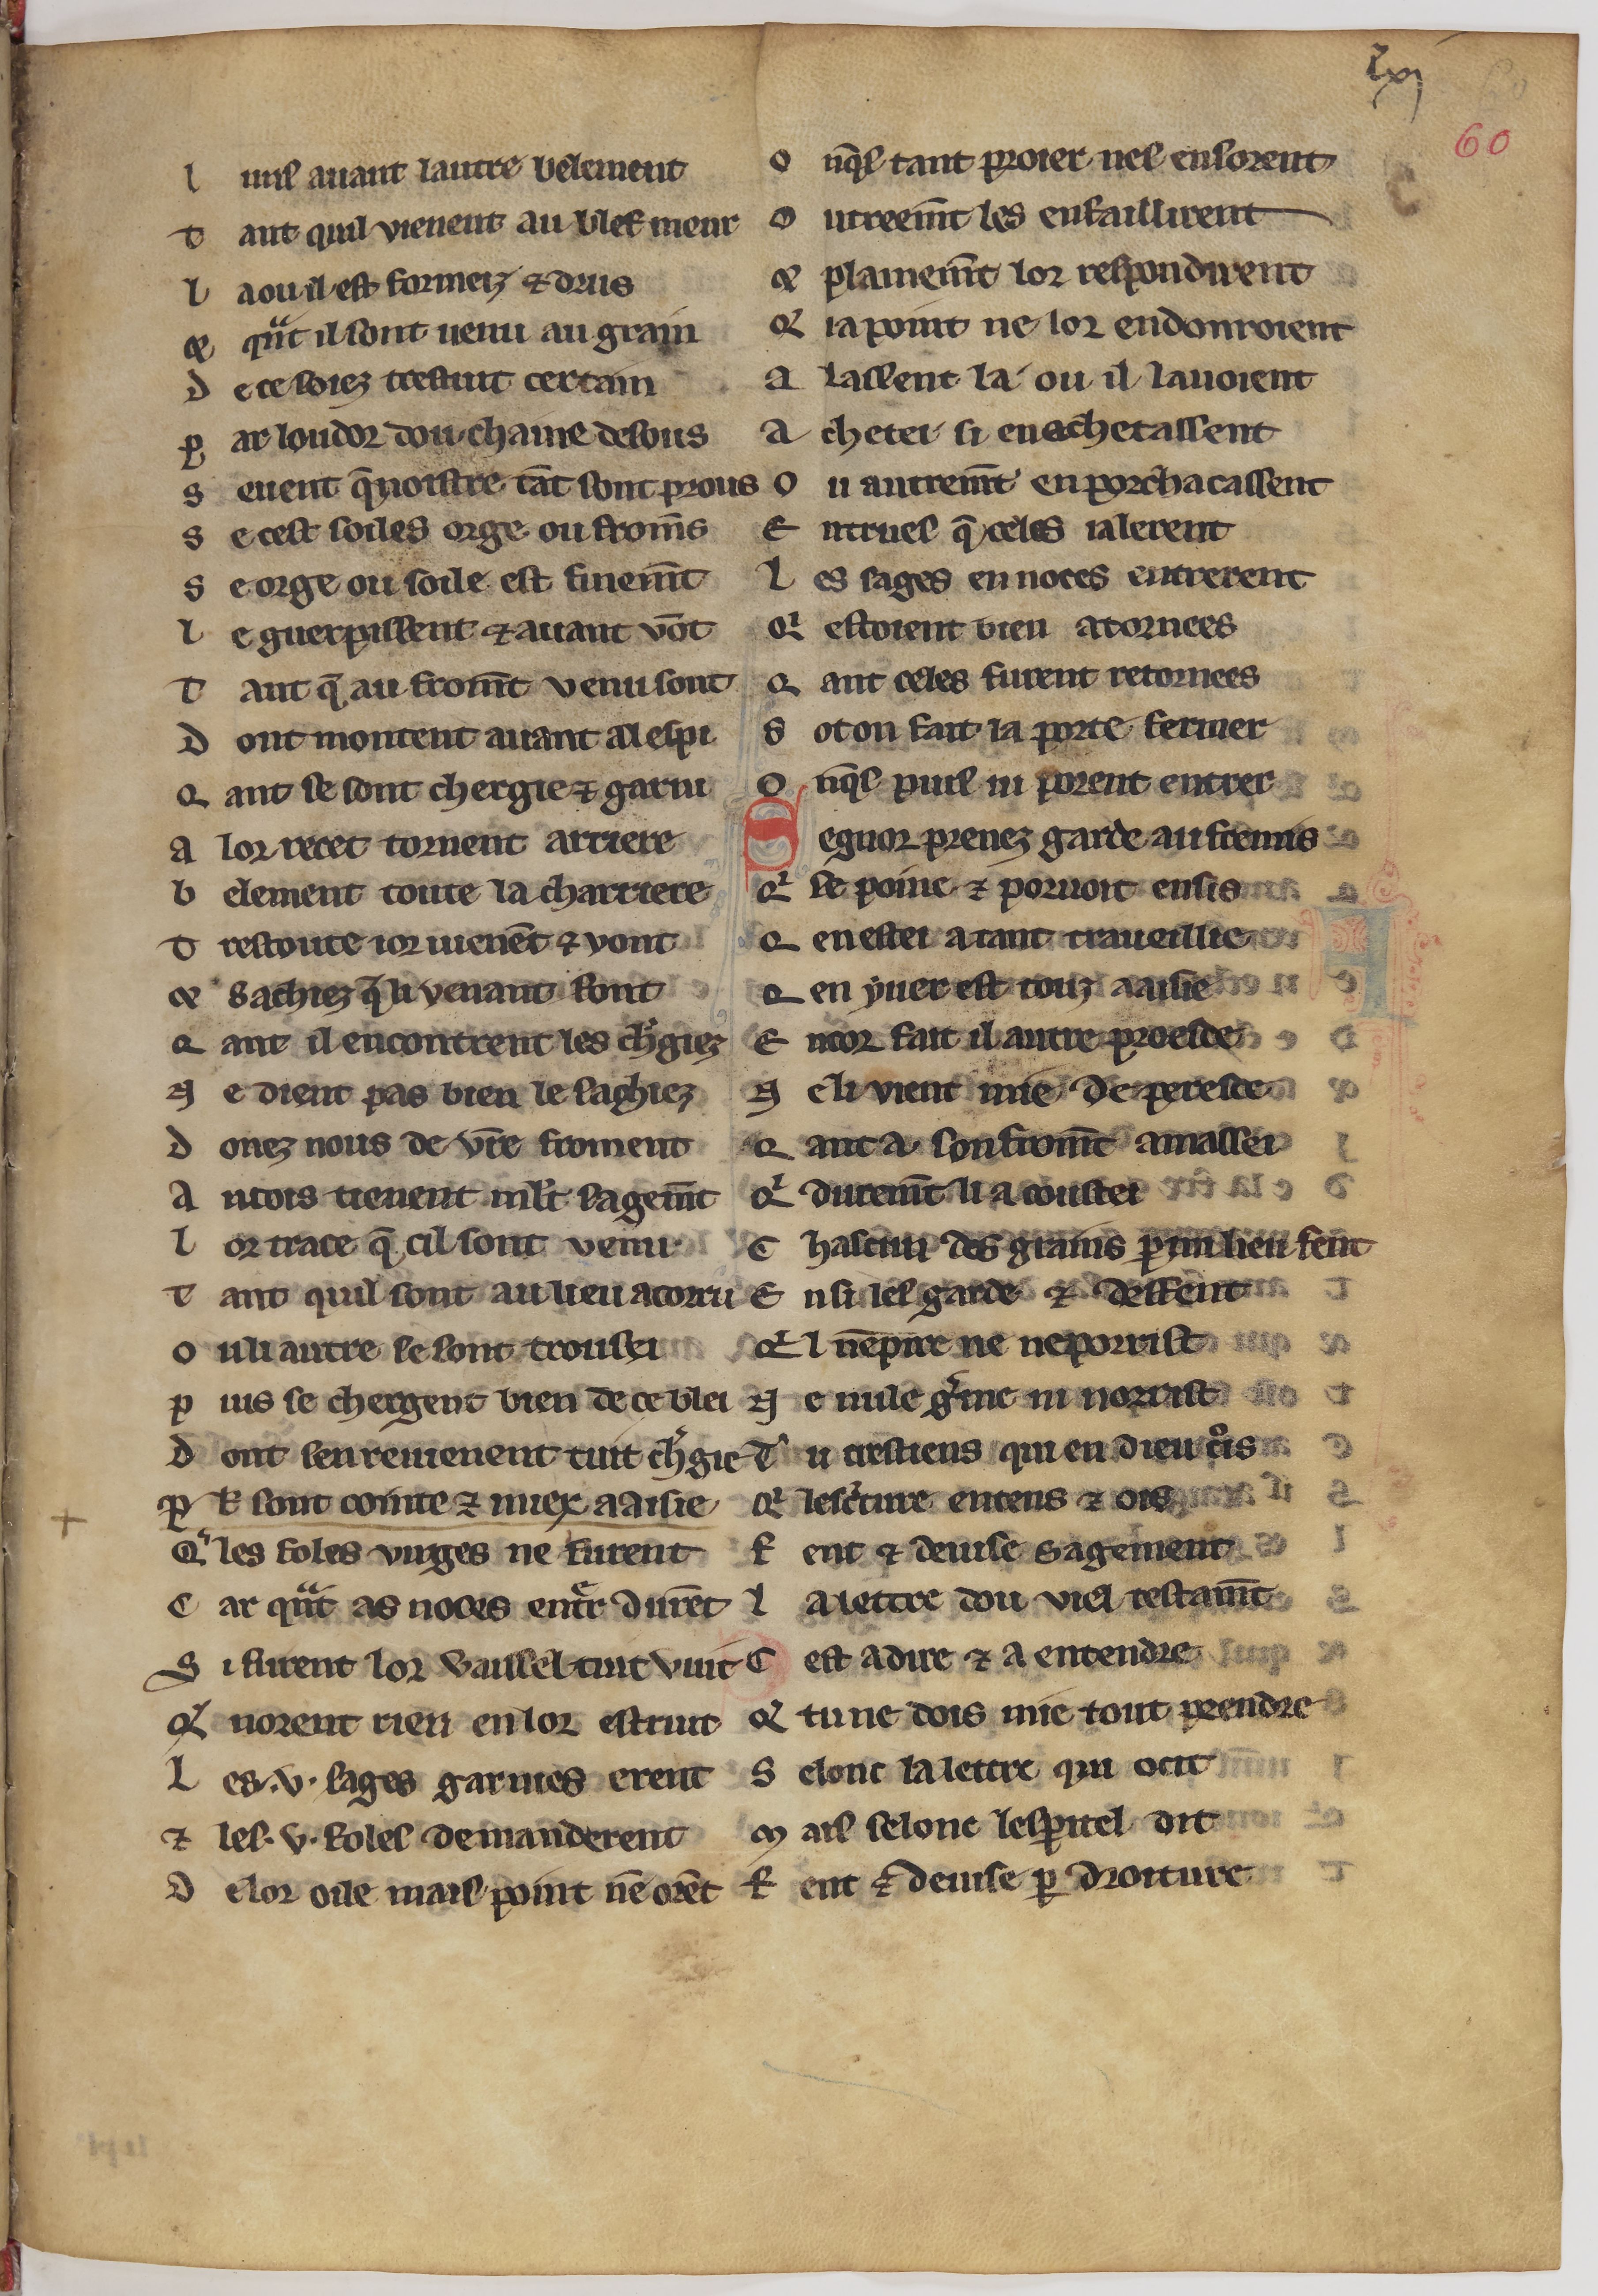 lxj
60
l uns auant lautre belement
T ant quil vienent au blef meur
l a ou il est formeiz & drus
& qu͛nt il sont uenu au grain
D e ce soiez trestuit certain
p ar loudor dou chaine desous
s euent q̄noistre tāt sont prous
s e cest soiles orge ou from̄s
s e orge ou soile est finem̄t
l e guerpissent & auant vōt
T ant q̄ au from̄t venu sont
D ont montent auant al espi
Q ant se sont chergie & garni
a lor recet tornent arriere
b element toute la charriere
T restoute ior uienēt & vont
& sachiez q̄ li venant sont
Q ant il encontrent les ch͛giez
N e dient pas bien le sachiez
D onez nous de vr̄e froment
A ncois tienent ml̄t sagem̄t
l or trace q̄ cil sont venu
T ant quil sont au lieu acorru
O u li autre se sont troussei
p uis se chergent bien de ce blei
D ont sen reuienent tuit ch͛gie
p͛ k sont cointe & muex aaisie
Qͥ les foles virges ne furent
C ar qu͛nt as noces entr͛ durēt
S i furent lor vaissel tuit vuit
Qͥ norent rien en lor estruit
L es .v. sages garnies erent
& les .v. foles demanderent
D e lor oile mais point nē orēt
O nq̄s tant proier nes ensorent
O utreem̄t les en faillirent
& plainem̄t lor respondirent
Qͥ ia point ne lor en donroient
A lassent la ou il lauoient
A chetei si en achetassent
O u autrem̄t en porchacassent
E ntrues q̄ celes i alerent
L es sages en noces entrerent
Qͥ estoient bien atornees
Q ant celes furent retornees
S ot on fait la porte fermer
O nq̄s puis ni porent entrer
S egnor prenez garde au fremis
Qͥ se poine & poruoit ensis
Q en estei a tant traueillie
Q en yuer est touz aaisie
E ncor fait il autre proesce
N e li vient mie de peresce
Q ant a son from̄t amassei
Qͥ durem̄t li a coustei
C hascun des grains p̱ mi lieu fent
E nsi les garde & deffent
Qͥl nēpire ne ne porrist
N e nule g͛ine ni norrist
T u crestiens qui en dieu c͛ois
Qͥ lesc͛iture entens & ois
F ent & deuise sagement
L a lettre dou viel testam̄t
C est a dire & a entendre
Qͥ tu ne dois mie tout prendre
S elonc la lettre qui ocit
M ais selonc lesp̱itel dit
F ent & deuise p̱ droiture